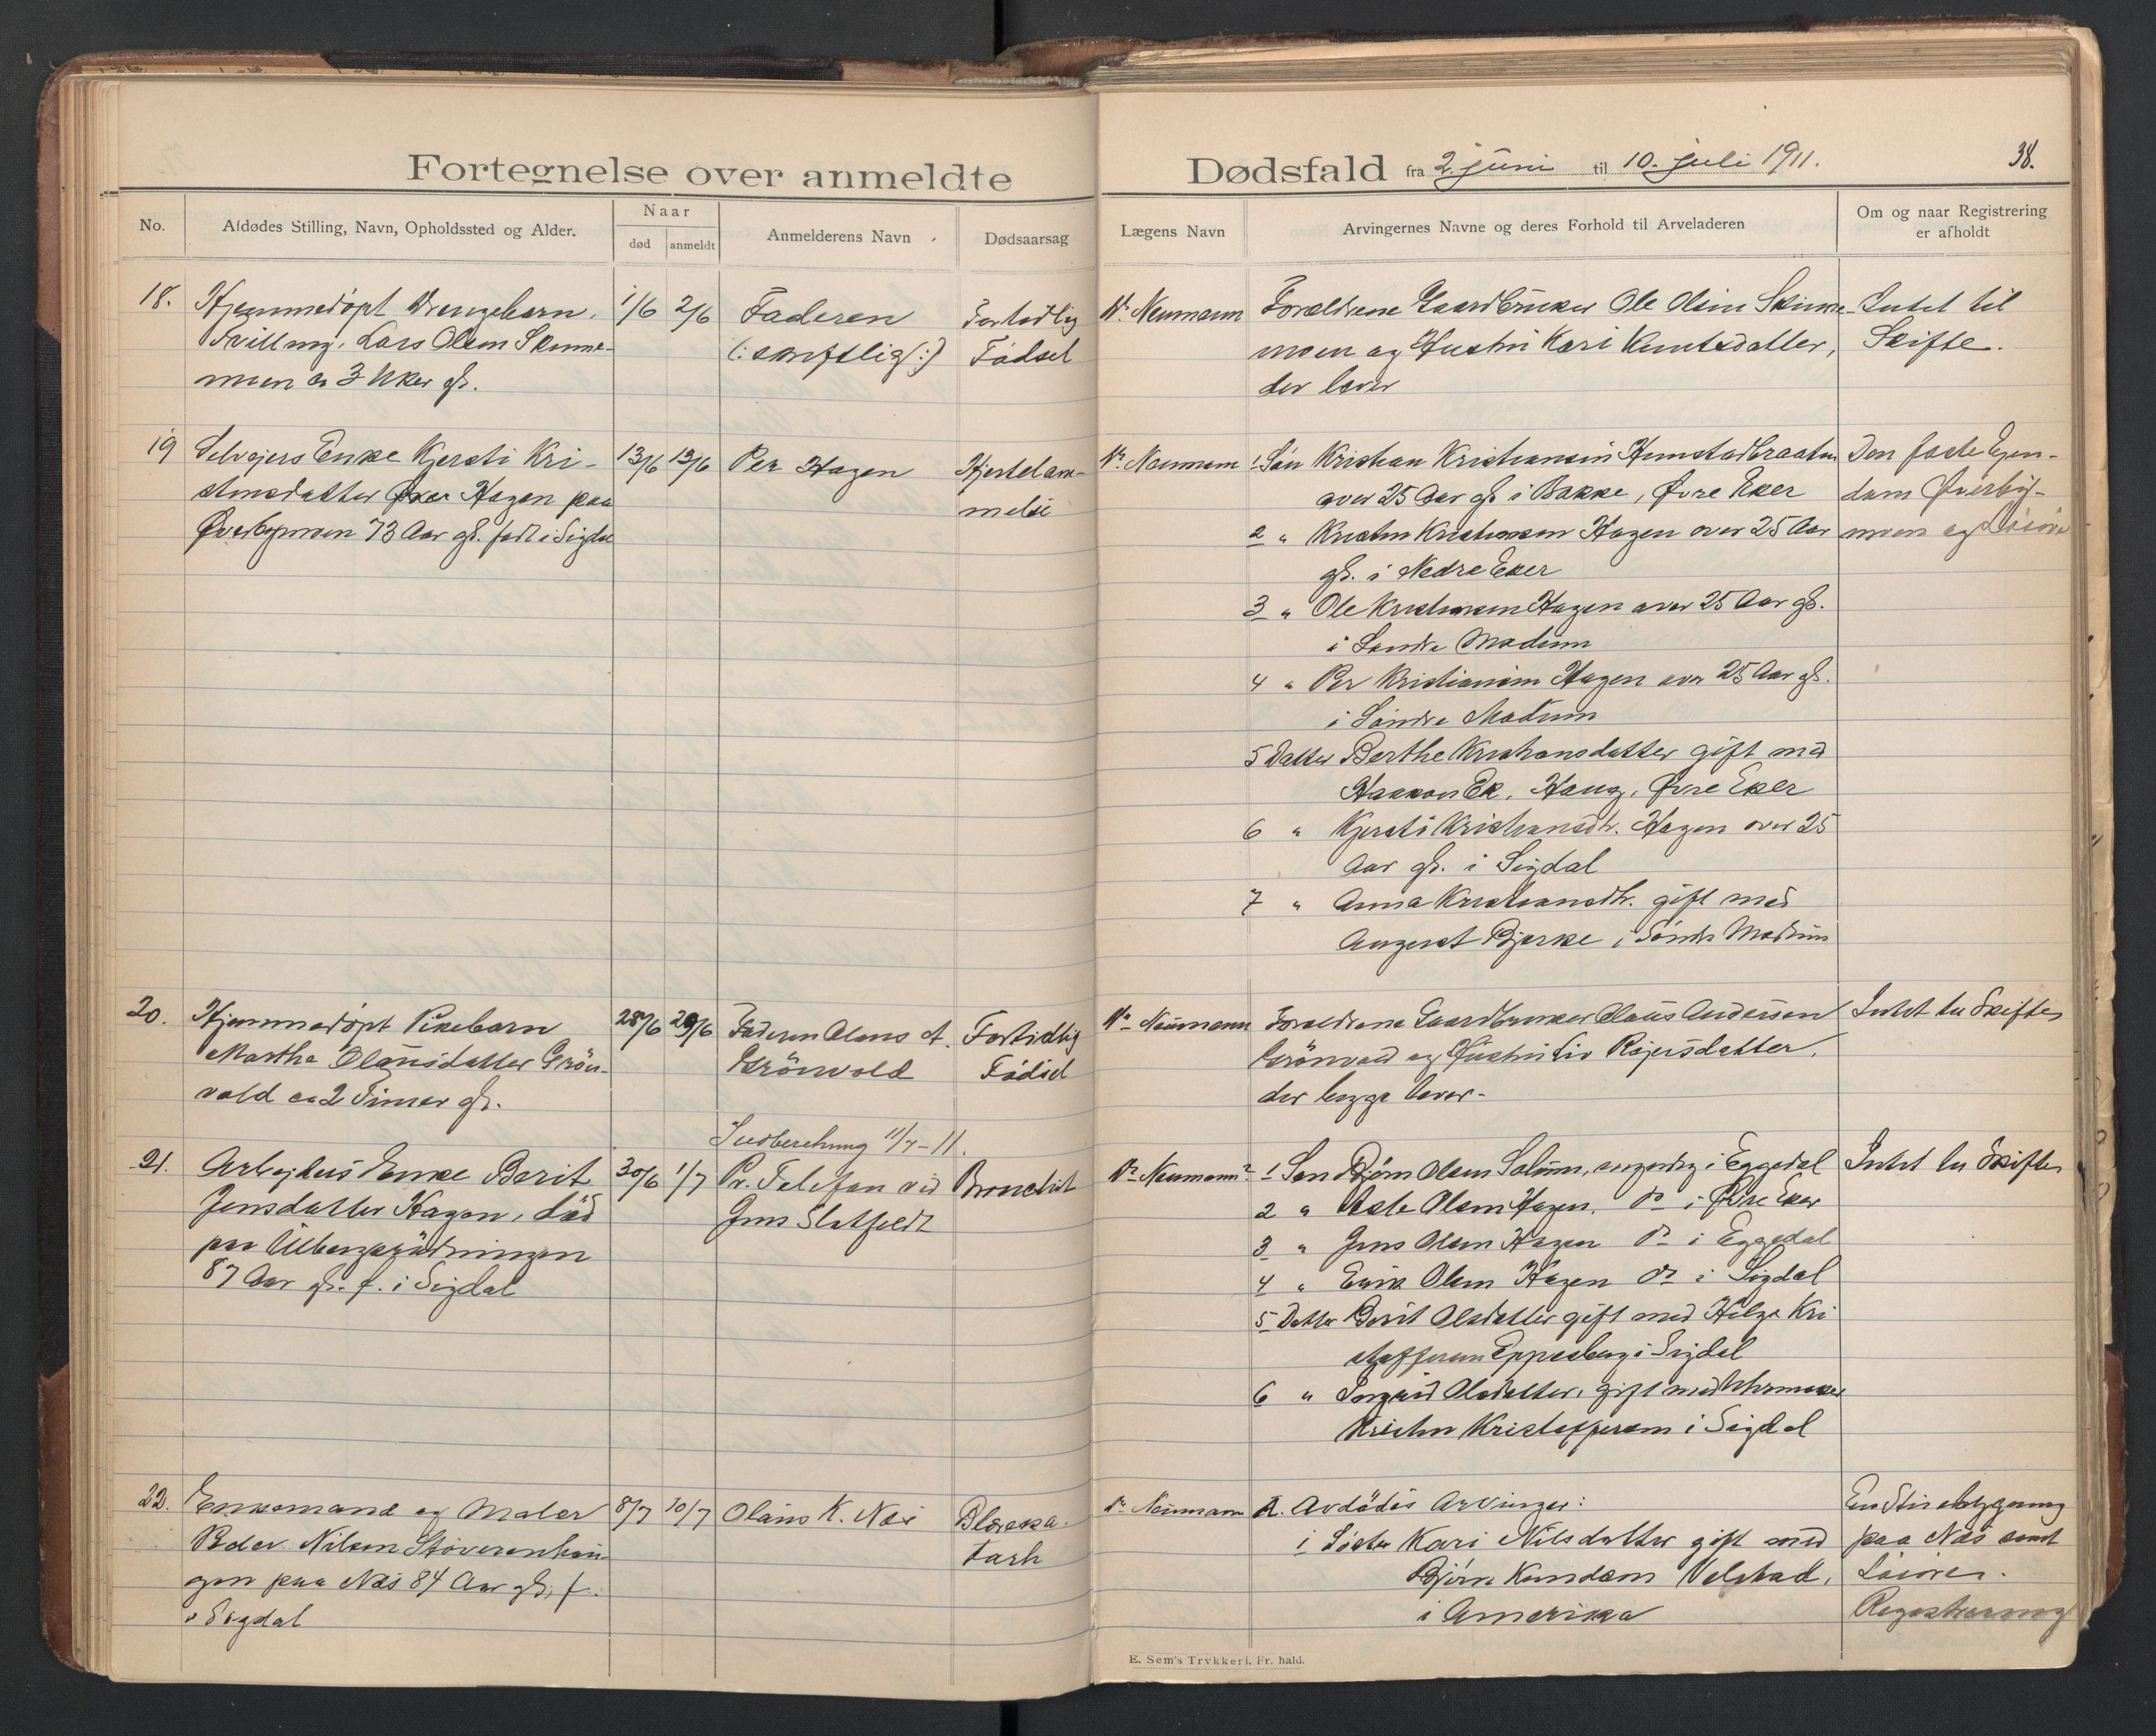 Fortegnelse over anmeldte
No.
Afdødes Stilling, Navn, Opholdssted og Alder.
Naar
død
anmeldt
Anmelderens Navn
Dødsaarsag
18. Hjemmedøpt Drengebarn, 1/6 2/6 Faderen Fortidlig
Tvilling, Lars Olsen Skinne- (: skriftlig :) Födsel
moen ca 3 Uker gl.
19 Selvejers Enke Kjersti Kri- 13/6 13/6 Per Hagen Hjertelam-
stensdatter Hagen paa melse
Øverbymoen 73 Aar gl. født i Sigdal
20. Hjemmedöpt Pikebarn 28/6 29/6 Faderen Olaus A. Fortidlig
Martha Olausdatter Grön- Grönvold Födsel
vold ca 2 Timer gl.
Indberetning 11/7-11.
21. Arbejders Enke Berit 30/6 1/7 Pr. Telefon ved Bronchit
Jensdatter Hagen, död Jens Slatfeldt
paa
87 Aar gl. f. i Sigdal
22. Enkemand og Maler 8/7 10/7 Olaus K. Næs Blæreka-
Peder Nilsen Stöverenhau- tarh
gen paa Næs 84 Aar gl, f.
i Sigdal
Dødsfald fra 2. juni til 10. juli 1911.
38.
Lægens Navn
Arvingernes Navne og deres Forhold til Arveladeren
Om og naar Registrering
er afholdt
Dr. Neumann Forældrene Gaardbruker Ole Olsen Skinne- Intet til
moen og Hustru Kari Knutsdatter, Skifte.
der lever
Dr. Neumann 1 Søn Kristian Kristiansen Hemstadbraaten Den faste Ejen-
over 25 Aar gl. i Bakke, Øvre Eker dom Øverby-
2 " Kristen Kristiansen Hagen over 25 Aar moen og Lösöre
gl. i Nedre Eker
3 " Ole Kristiansen Hagen over 25 Aar gl.
i Söndre Modum
4 " Per Kristiansen Hagen over 25 Aar gl.
i Söndre Modum
5 Datter Berthe Kristiansdatter gift med
Haakon Ek, Haug, Øvre Eker
6 " Kjersti Kristiansdtr. Hagen over 25
Aar gl. i Sigdal
7 " Anna Kristiansdtr. gift med
August Bjerke i Söndre Modum
Dr. Neumann Forældrene Gaardbruker Olaus Andersen Intet til Skifte
Grönvold og Hustru Liv Rejersdatter,
der begge lever.
Dr. Neumann 1 Søn Bjørn Olsen Solum, myndig i Eggedal Intet til Skifte
2 " Asle Olsen Hagen, do i Øvre Eker
3 " Jens Olsen Hagen do i Eggedal
4 " Erik Olsen Hagen do i Sigdal
5 Datter Berit Olsdatter gift med Helge Kri
stoffersen Eppeberg i Sigdal
6 " Ingrid Olsdatter, gift med Uhrmaker
Kristen Kristoffersen i Sigdal
Dr. Neumann A. Avdödes Arvinger: En Stuebygning
1 Söster Kari Nilsdatter gift med paa Næs samt
Björn Knudsen Velstad, Lösöre.
i Amerika Registrering
E. Sem's Trykkeri. Fr. hald.